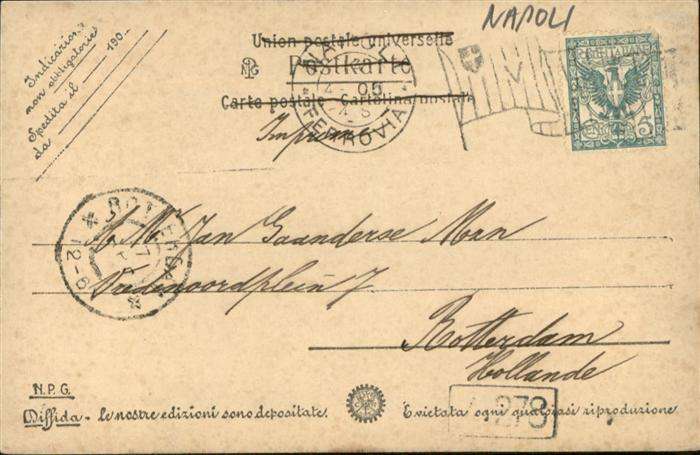 NAPOLI
Indicazione
non obbligatoria
Spedita il 190
da
Union postale universelle
Postkarte
Carte postale Cartolina postale
NAPOLI
05
FERROVIA
5
Jan Gaanderse Man
7
Rotterdam
Hollande
12-6
N.P.G.
Diffida - le nostre edizioni sono depositate. È vietata ogni qualsiasi riproduzione.
278